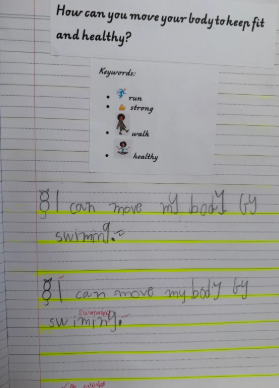 How can you move your body to keep fit
and healthy?
Keywords:
• run
• strong
• walk
• healthy
I can move my body by
swimng.
I can move my body by
swimming
swiming.